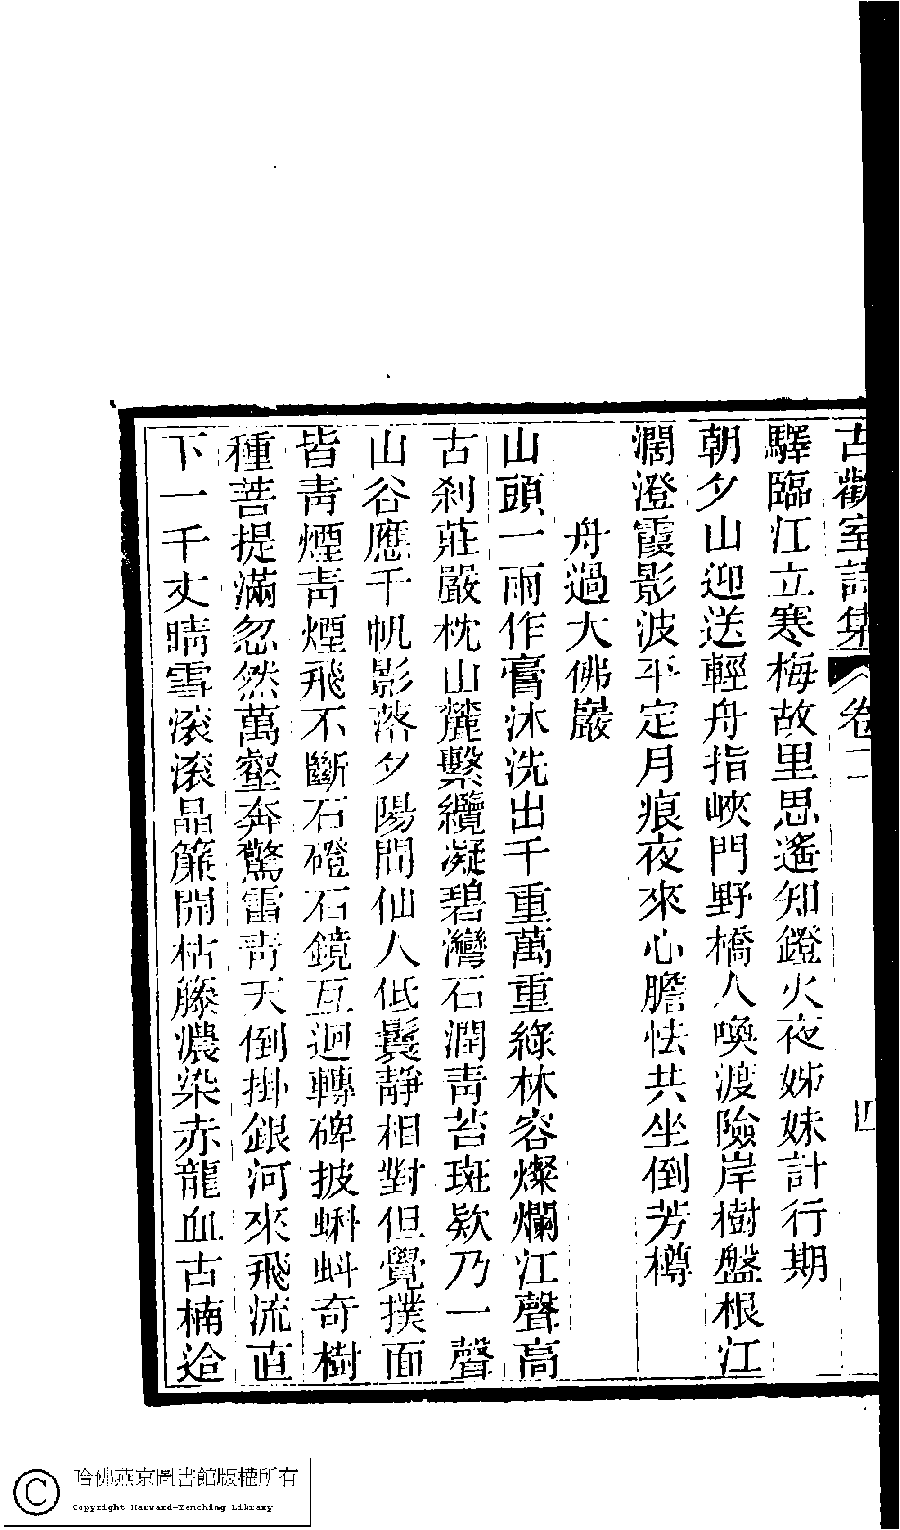 古歡室詩集 卷二 四
驛臨江立寒梅故里思遙知鐙火夜姊妹計行期
朝夕山迎送輕舟指峽門野橋人喚渡險岸樹盤根江
濶澄霞影波平定月痕夜來心膽怯共坐倒芳樽
舟過大佛巖
山頭一雨作膏沐洗出千重萬重綠林容燦爛江聲高
古刹莊嚴枕山麓繫纜凝碧灣石潤靑苔斑欸乃一聲
山谷應千帆影落夕陽間仙人低鬟靜相對但覺撲面
皆靑煙靑煙飛不斷石磴石鏡互迴轉碑披蝌蚪奇樹
種菩提滿忽然萬壑奔驚雷靑天倒掛銀河來飛流直
下一千丈晴雪滾滾晶簾開枯籐濃染赤龍血古楠逾
哈佛燕京圖書館版權所有
Copyright Harvard-Yenching Library